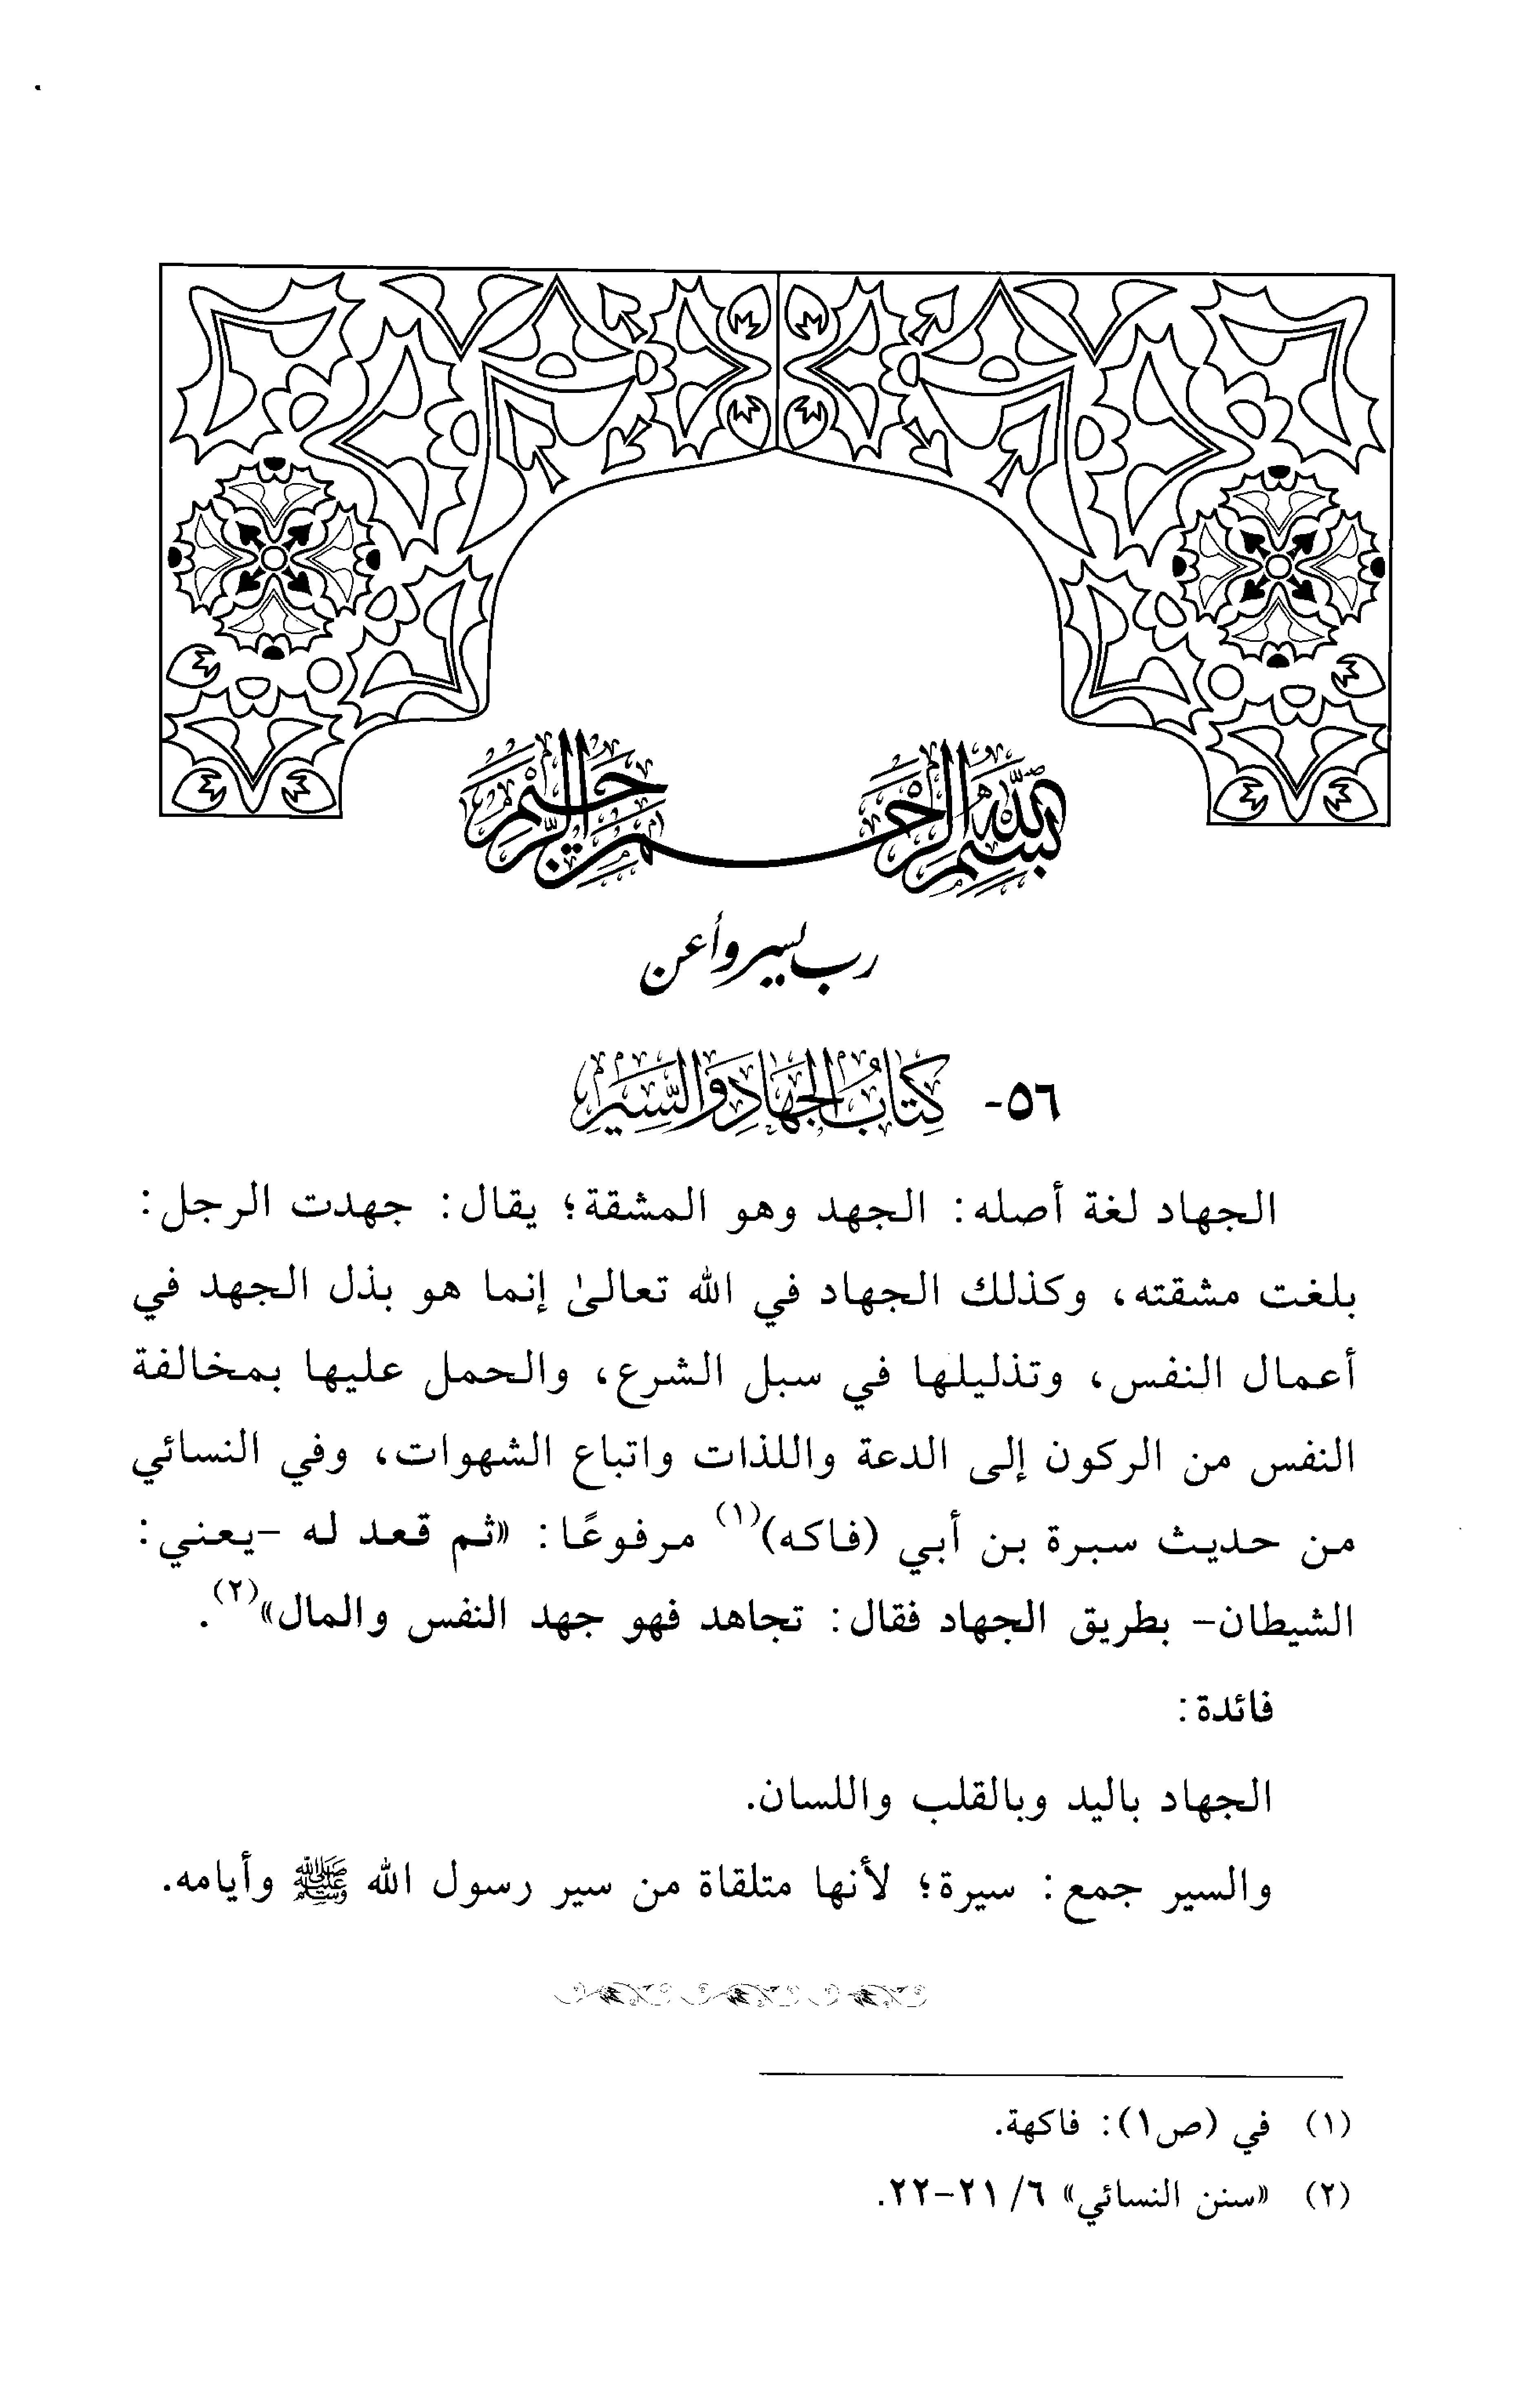 بسم الله الرحمن الرحيم
رب يسر وأعن
٥٦- كتاب الجهاد والسير
الجهاد لغة أصله: الجهد وهو المشقة؛ يقال: جهدت الرجل:
بلغت مشقته، وكذلك الجهاد في الله تعالىٰ إنما هو بذل الجهد في
أعمال النفس، وتذليلها في سبل الشرع، والحمل عليها بمخالفة
النفس من الركون إلى الدعة واللذات واتباع الشهوات، وفي النسائي
من حديث سبرة بن أبي (فاكه)(١) مرفوعًا: «ثم قعد له -يعني:
الشيطان- بطريق الجهاد فقال: تجاهد فهو جهد النفس والمال»(٢).
فائدة:
الجهاد باليد وبالقلب واللسان.
والسير جمع: سيرة؛ لأنها متلقاة من سير رسول الله ﷺ وأيامه.
(١) في (ص١): فاكهة.
(٢) «سنن النسائي» ٦/ ٢١-٢٢.